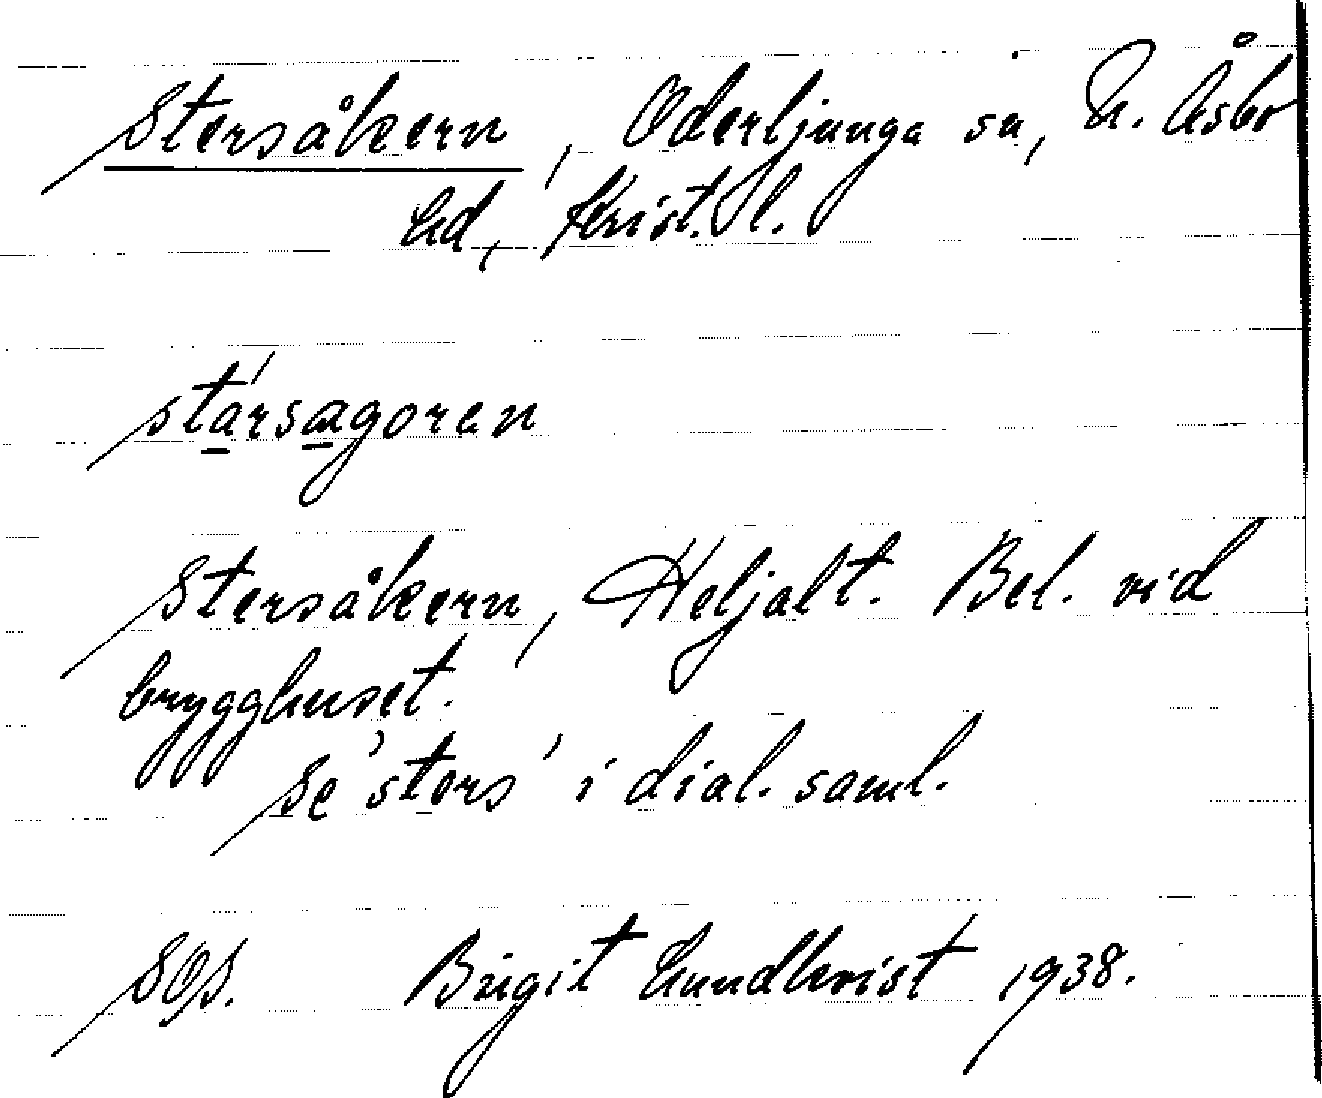 Stersåkern, Oderljunga sn, N. Åsbo
hd, Krist. l.
stársagoren
Stersåkern, Heljalt. Bel. vid
brygghuset.
Se 'sters' i dial. saml.
SOS. Birgit Lundkvist 1938.